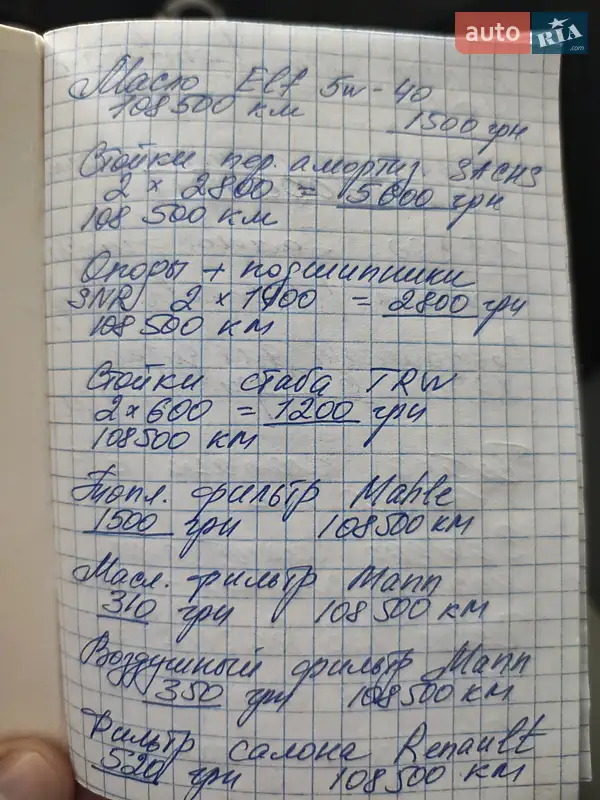 auto RIA .com
Масло Elf 5w-40
108500 км 1500 грн
Стойки пер. амортиз. SACHS
2 × 2800 = 5600 грн
108500 км
Опоры + подшипники
SNR 2 × 1400 = 2800 грн
108500 км
Стойки стаба TRW
2 × 600 = 1200 грн
108500 км
Топл. фильтр Mahle
1500 грн 108500 км
Масл. фильтр Mann
310 грн 108500 км
Воздушный фильтр Mann
350 грн 108500 км
Фильтр салона Renault
520 грн 108500 км